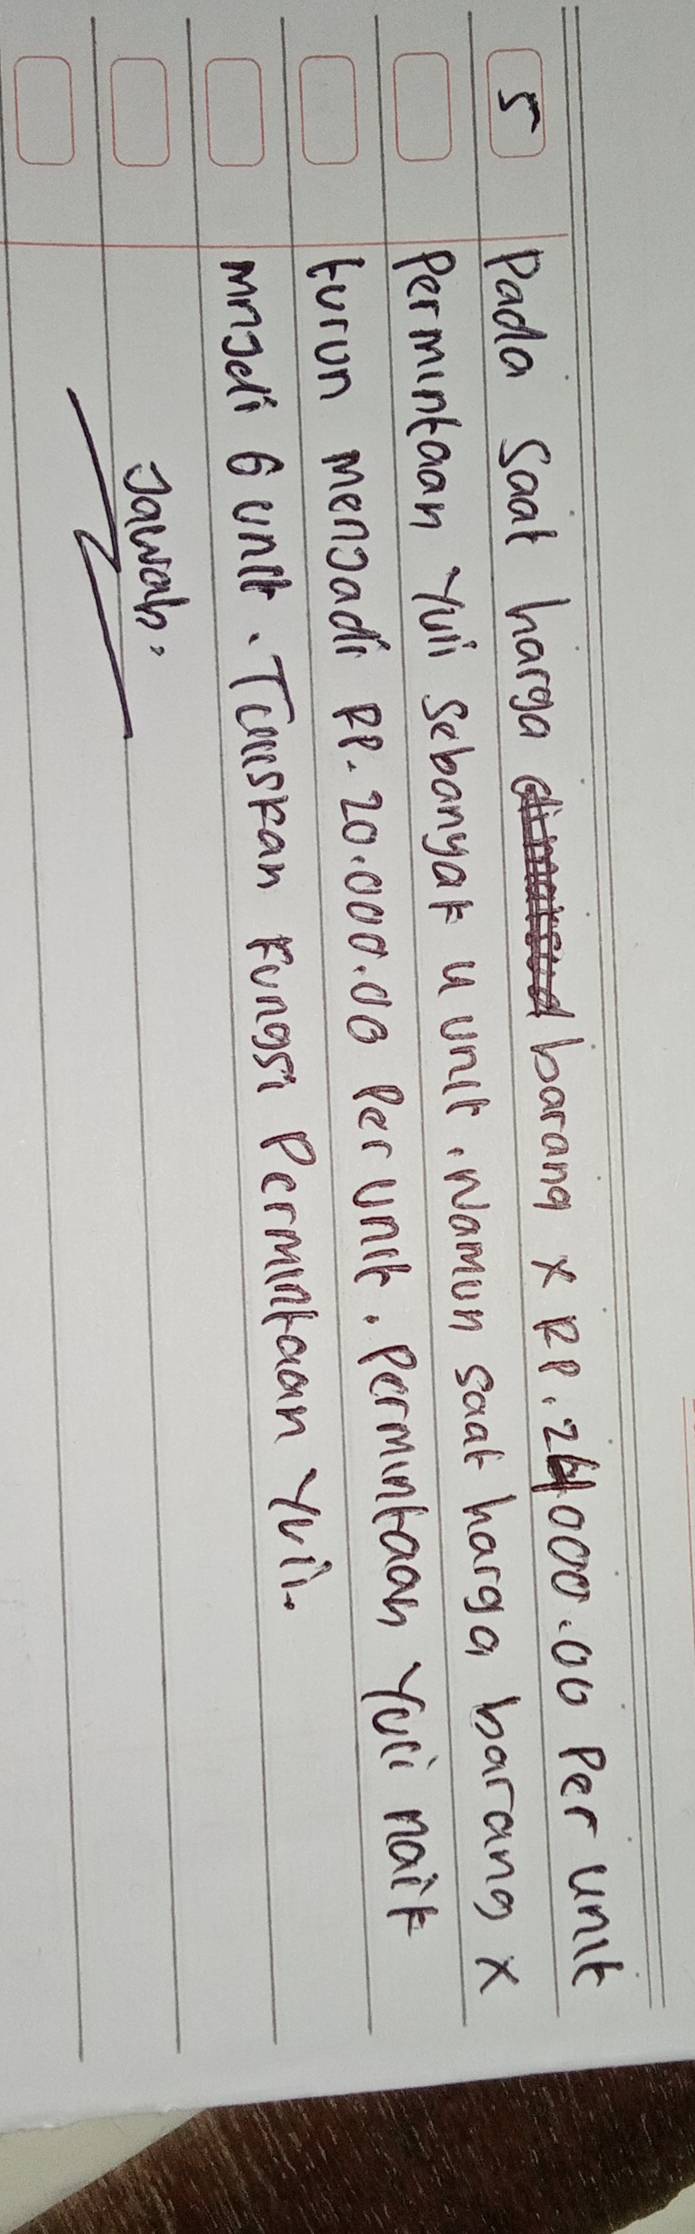 5 Pada saat harga barang x RP. 24000.00 Per unit
Permintaan Yuli sebanyak 4 unit. Namun saat harga barang x
turun menjadi RP. 20.000.00 Per unit. Permintaan Yuli naik
mnjdi 6 unit. Tuliskan Fungsi Permintaan Yuli.
Jawab: